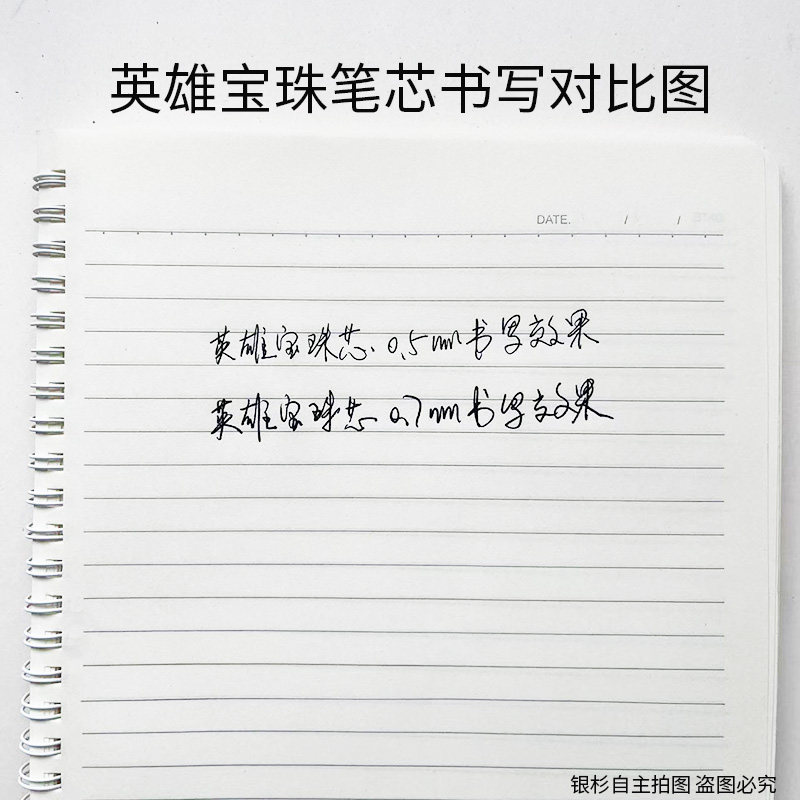 英雄宝珠笔芯书写对比图
DATE. / /
英雄宝珠芯.0.5mm书写效果
英雄宝珠芯.0.7mm书写效果
银杉自主拍图 盗图必究